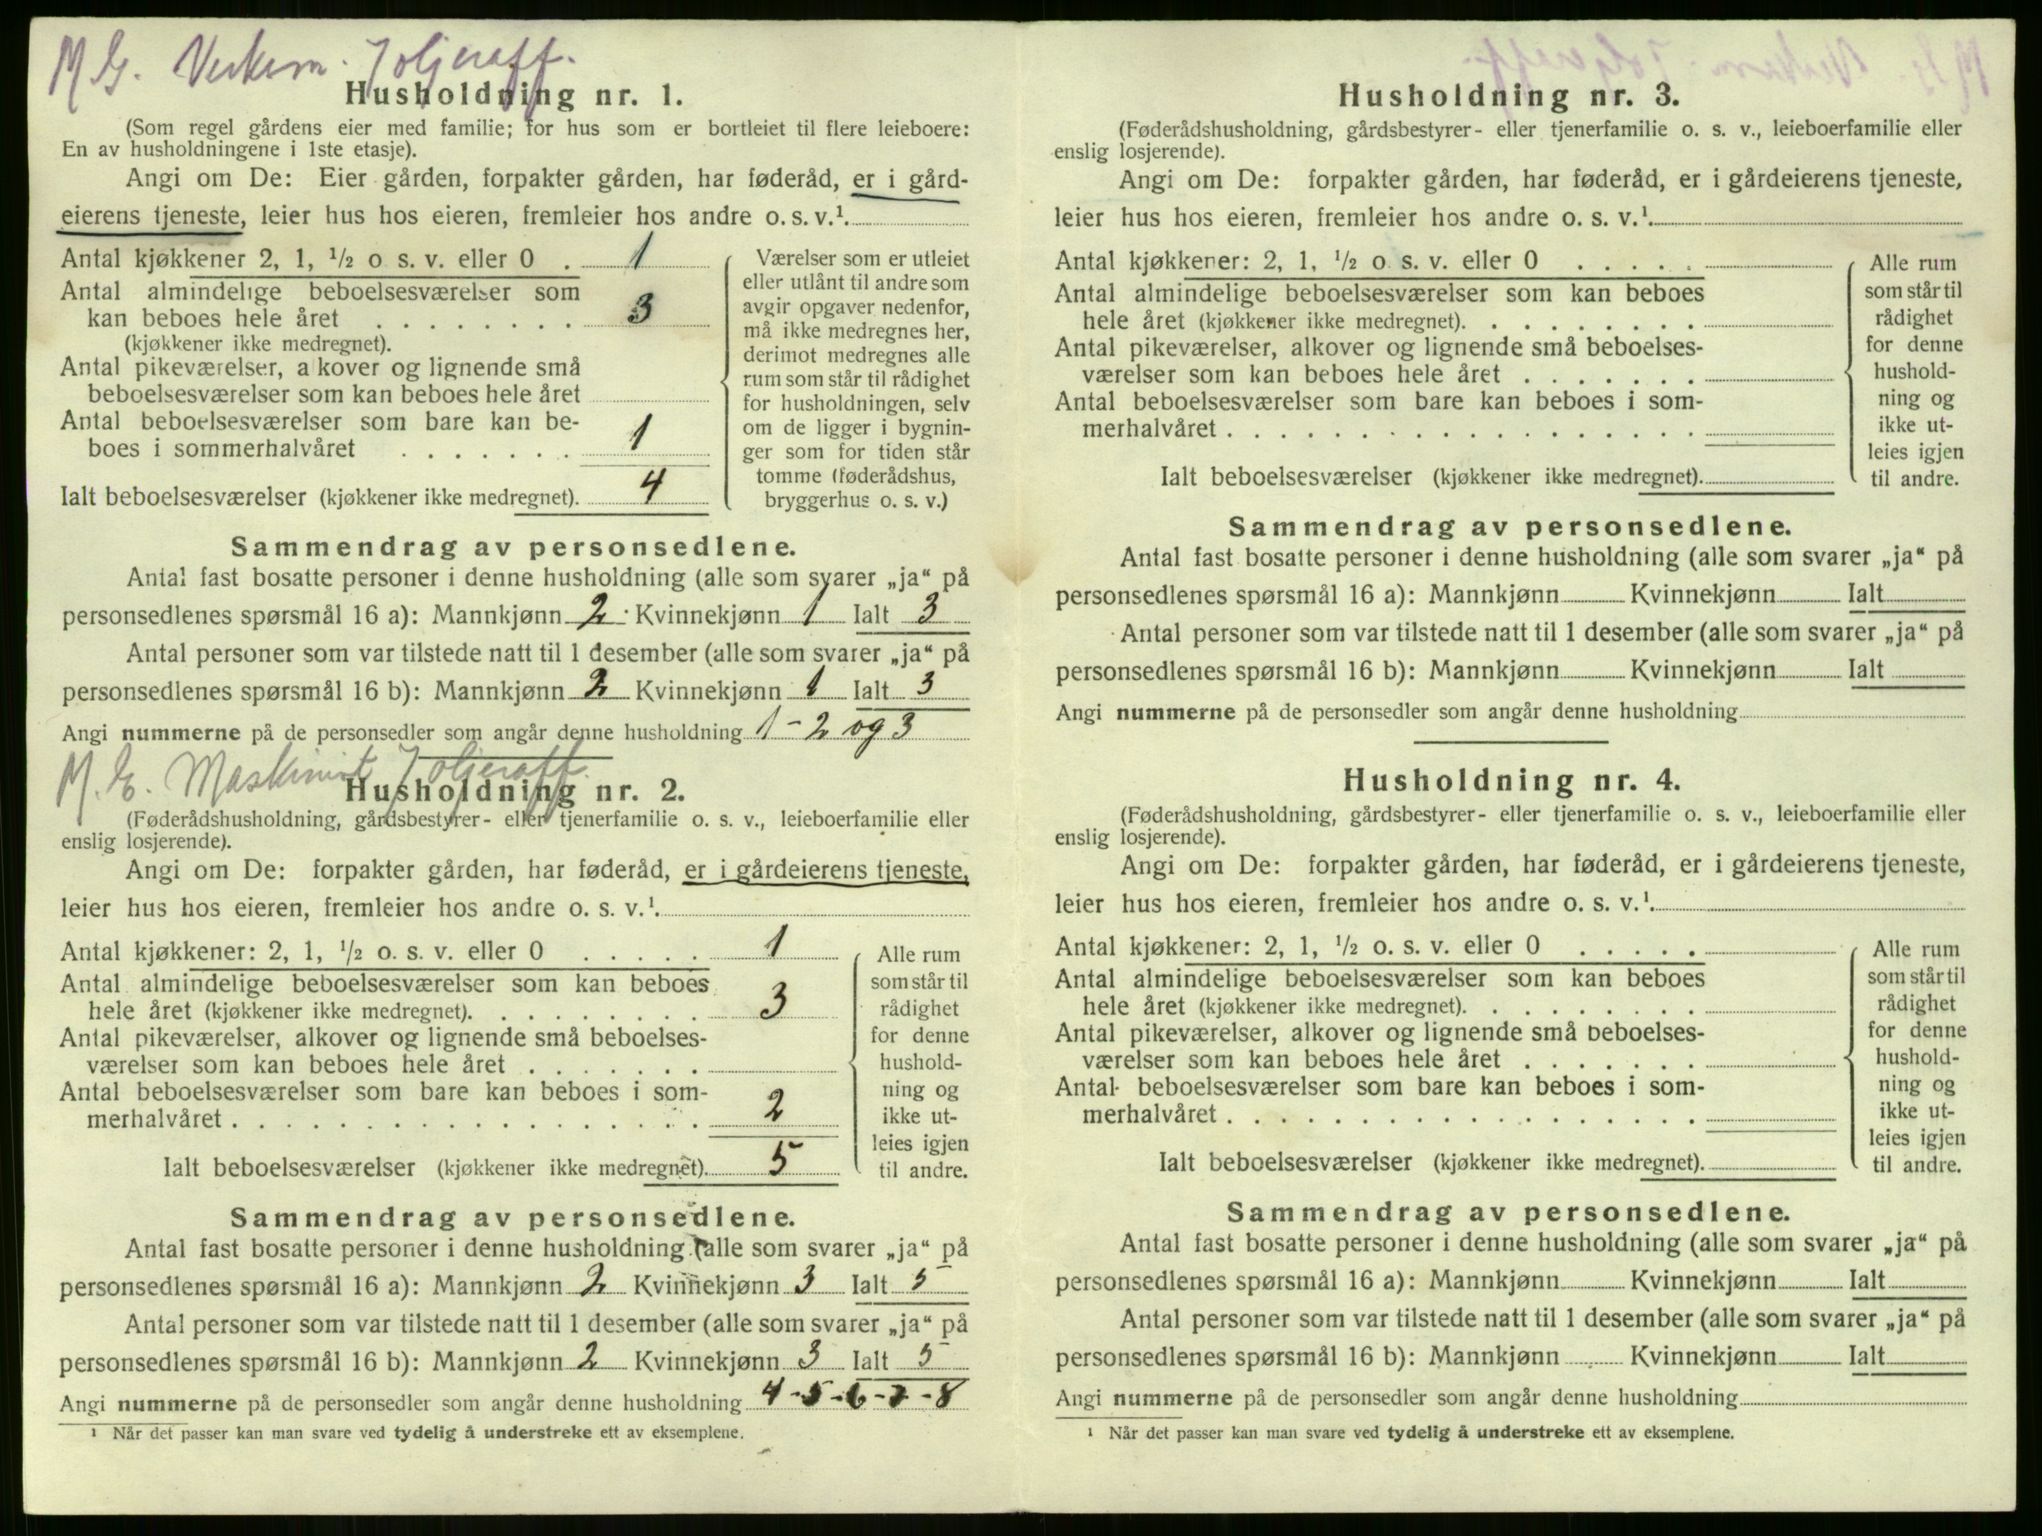 M. G. Verksm. Joljeraff.
Husholdning nr. 1.
(Som regel gårdens eier med familie; for hus som er bortleiet til flere leieboere:
En av husholdningene i 1ste etasje).
Angi om De: Eier gården, forpakter gården, har føderåd, er i gård-
eierens tjeneste, leier hus hos eieren, fremleier hos andre o. s. v.¹
Antal kjøkkener 2, 1, ½ o s. v. eller 0 . 1
Antal almindelige beboelsesværelser som
kan beboes hele året . . . . . . . . 3
(kjøkkener ikke medregnet).
Antal pikeværelser, a kover og lignende små
beboelsesværelser som kan beboes hele året
Antal beboelsesværelser som bare kan be-
boes i sommerhalvåret . . . . . . . 1
Ialt beboelsesværelser (kjøkkener ikke medregnet). 4
Værelser som er utleiet
eller utlånt til andre som
avgir opgaver nedenfor,
må ikke medregnes her,
derimot medregnes alle
rum som står til rådighet
for husholdningen, selv
om de ligger i bygnin-
ger som for tiden står
tomme (føderådshus,
bryggerhus o. s. v.)
Sammendrag av personsedlene.
Antal fast bosatte personer i denne husholdning (alle som svarer „ja“ på
personsedlenes spørsmål 16 a): Mannkjønn 2 Kvinnekjønn 1 Ialt 3
Antal personer som var tilstede natt til 1 desember (alle som svarer „ja“ på
personsedlenes spørsmål 16 b): Mannkjønn 2 Kvinnekjønn 1 Ialt 3
Angi nummerne på de personsedler som angår denne husholdning 1 - 2 og 3
M. G. Maskinist Joljeraff.
Husholdning nr. 2.
(Føderådshusholdning, gårdsbestyrer- eller tjenerfamilie o. s. v., leieboerfamilie eller
enslig losjerende).
Angi om De: forpakter gården, har føderåd, er i gårdeierens tjeneste,
leier hus hos eieren, fremleier hos andre o. s. v.¹
Antal kjøkkener: 2, 1, ½ o. s. v. eller 0 . . . . . 1
Antal almindelige beboelsesværelser som kan beboes
hele året (kjøkkener ikke medregnet). . . . . . . . . 3
Antal pikeværelser, alkover og lignende små beboelses-
værelser som kan beboes hele året . . . . . . .
Antal beboelsesværelser som bare kan beboes i som-
merhalvåret . . . . . . . . . . . . . . . . . . 2
Ialt beboelsesværelser (kjøkkener ikke medregnet). 5
Alle rum
som står til
rådighet
for denne
hushold-
ning og
ikke ut-
leies igjen
til andre.
Sammendrag av personsedlene.
Antal fast bosatte personer i denne husholdning (alle som svarer „ja“ på
personsedlenes spørsmål 16 a): Mannkjønn 2 Kvinnekjønn 3 Ialt 5
Antal personer som var tilstede natt til 1 desember (alle som svarer „ja“ på
personsedlenes spørsmål 16 b): Mannkjønn 2 Kvinnekjønn 3 Ialt 5
Angi nummerne på de personsedler som angår denne husholdning 4 - 5 - 6 - 7 - 8
¹ Når det passer kan man svare ved tydelig å understreke ett av eksemplene.
Husholdning nr. 3.
(Føderådshusholdning, gårdsbestyrer- eller tjenerfamilie o. s. v., leieboerfamilie eller
enslig losjerende).
Angi om De: forpakter gården, har føderåd, er i gårdeierens tjeneste,
leier hus hos eieren, fremleier hos andre o. s. v.¹
Antal kjøkkener: 2, 1, ½ o. s. v. eller 0 . . . . .
Antal almindelige beboelsesværelser som kan beboes
hele året (kjøkkener ikke medregnet). . . . . . . . .
Antal pikeværelser, alkover og lignende små beboelses-
værelser som kan beboes hele året . . . . . . .
Antal beboelsesværelser som bare kan beboes i som-
merhalvåret . . . . . . . . . . . . . . . . . .
Ialt beboelsesværelser (kjøkkener ikke medregnet).
Alle rum
som står til
rådighet
for denne
hushold-
ning og
ikke ut-
leies igjen
til andre.
Sammendrag av personsedlene.
Antal fast bosatte personer i denne husholdning (alle som svarer „ja“ på
personsedlenes spørsmål 16 a): Mannkjønn Kvinnekjønn Ialt
Antal personer som var tilstede natt til 1 desember (alle som svarer „ja“ på
personsedlenes spørsmål 16 b): Mannkjønn Kvinnekjønn Ialt
Angi nummerne på de personsedler som angår denne husholdning
Husholdning nr. 4.
(Føderådshusholdning, gårdsbestyrer- eller tjenerfamilie o. s. v., leieboerfamilie eller
enslig losjerende).
Angi om De: forpakter gården, har føderåd, er i gårdeierens tjeneste,
leier hus hos eieren, fremleier hos andre o. s. v.¹
Antal kjøkkener: 2, 1, ½ o. s. v. eller 0 . . . . .
Antal almindelige beboelsesværelser som kan beboes
hele året (kjøkkener ikke medregnet). . . . . . . . .
Antal pikeværelser, alkover og lignende små beboelses-
værelser som kan beboes hele året . . . . . . .
Antal beboelsesværelser som bare kan beboes i som-
merhalvåret . . . . . . . . . . . . . . . . . .
Ialt beboelsesværelser (kjøkkener ikke medregnet).
Alle rum
som står til
rådighet
for denne
hushold-
ning og
ikke ut-
leies igjen
til andre.
Sammendrag av personsedlene.
Antal fast bosatte personer i denne husholdning (alle som svarer „ja“ på
personsedlenes spørsmål 16 a): Mannkjønn Kvinnekjønn Ialt
Antal personer som var tilstede natt til 1 desember (alle som svarer „ja“ på
personsedlenes spørsmål 16 b): Mannkjønn Kvinnekjønn Ialt
Angi nummerne på de personsedler som angår denne husholdning
¹ Når det passer kan man svare ved tydelig å understreke ett av eksemplene.